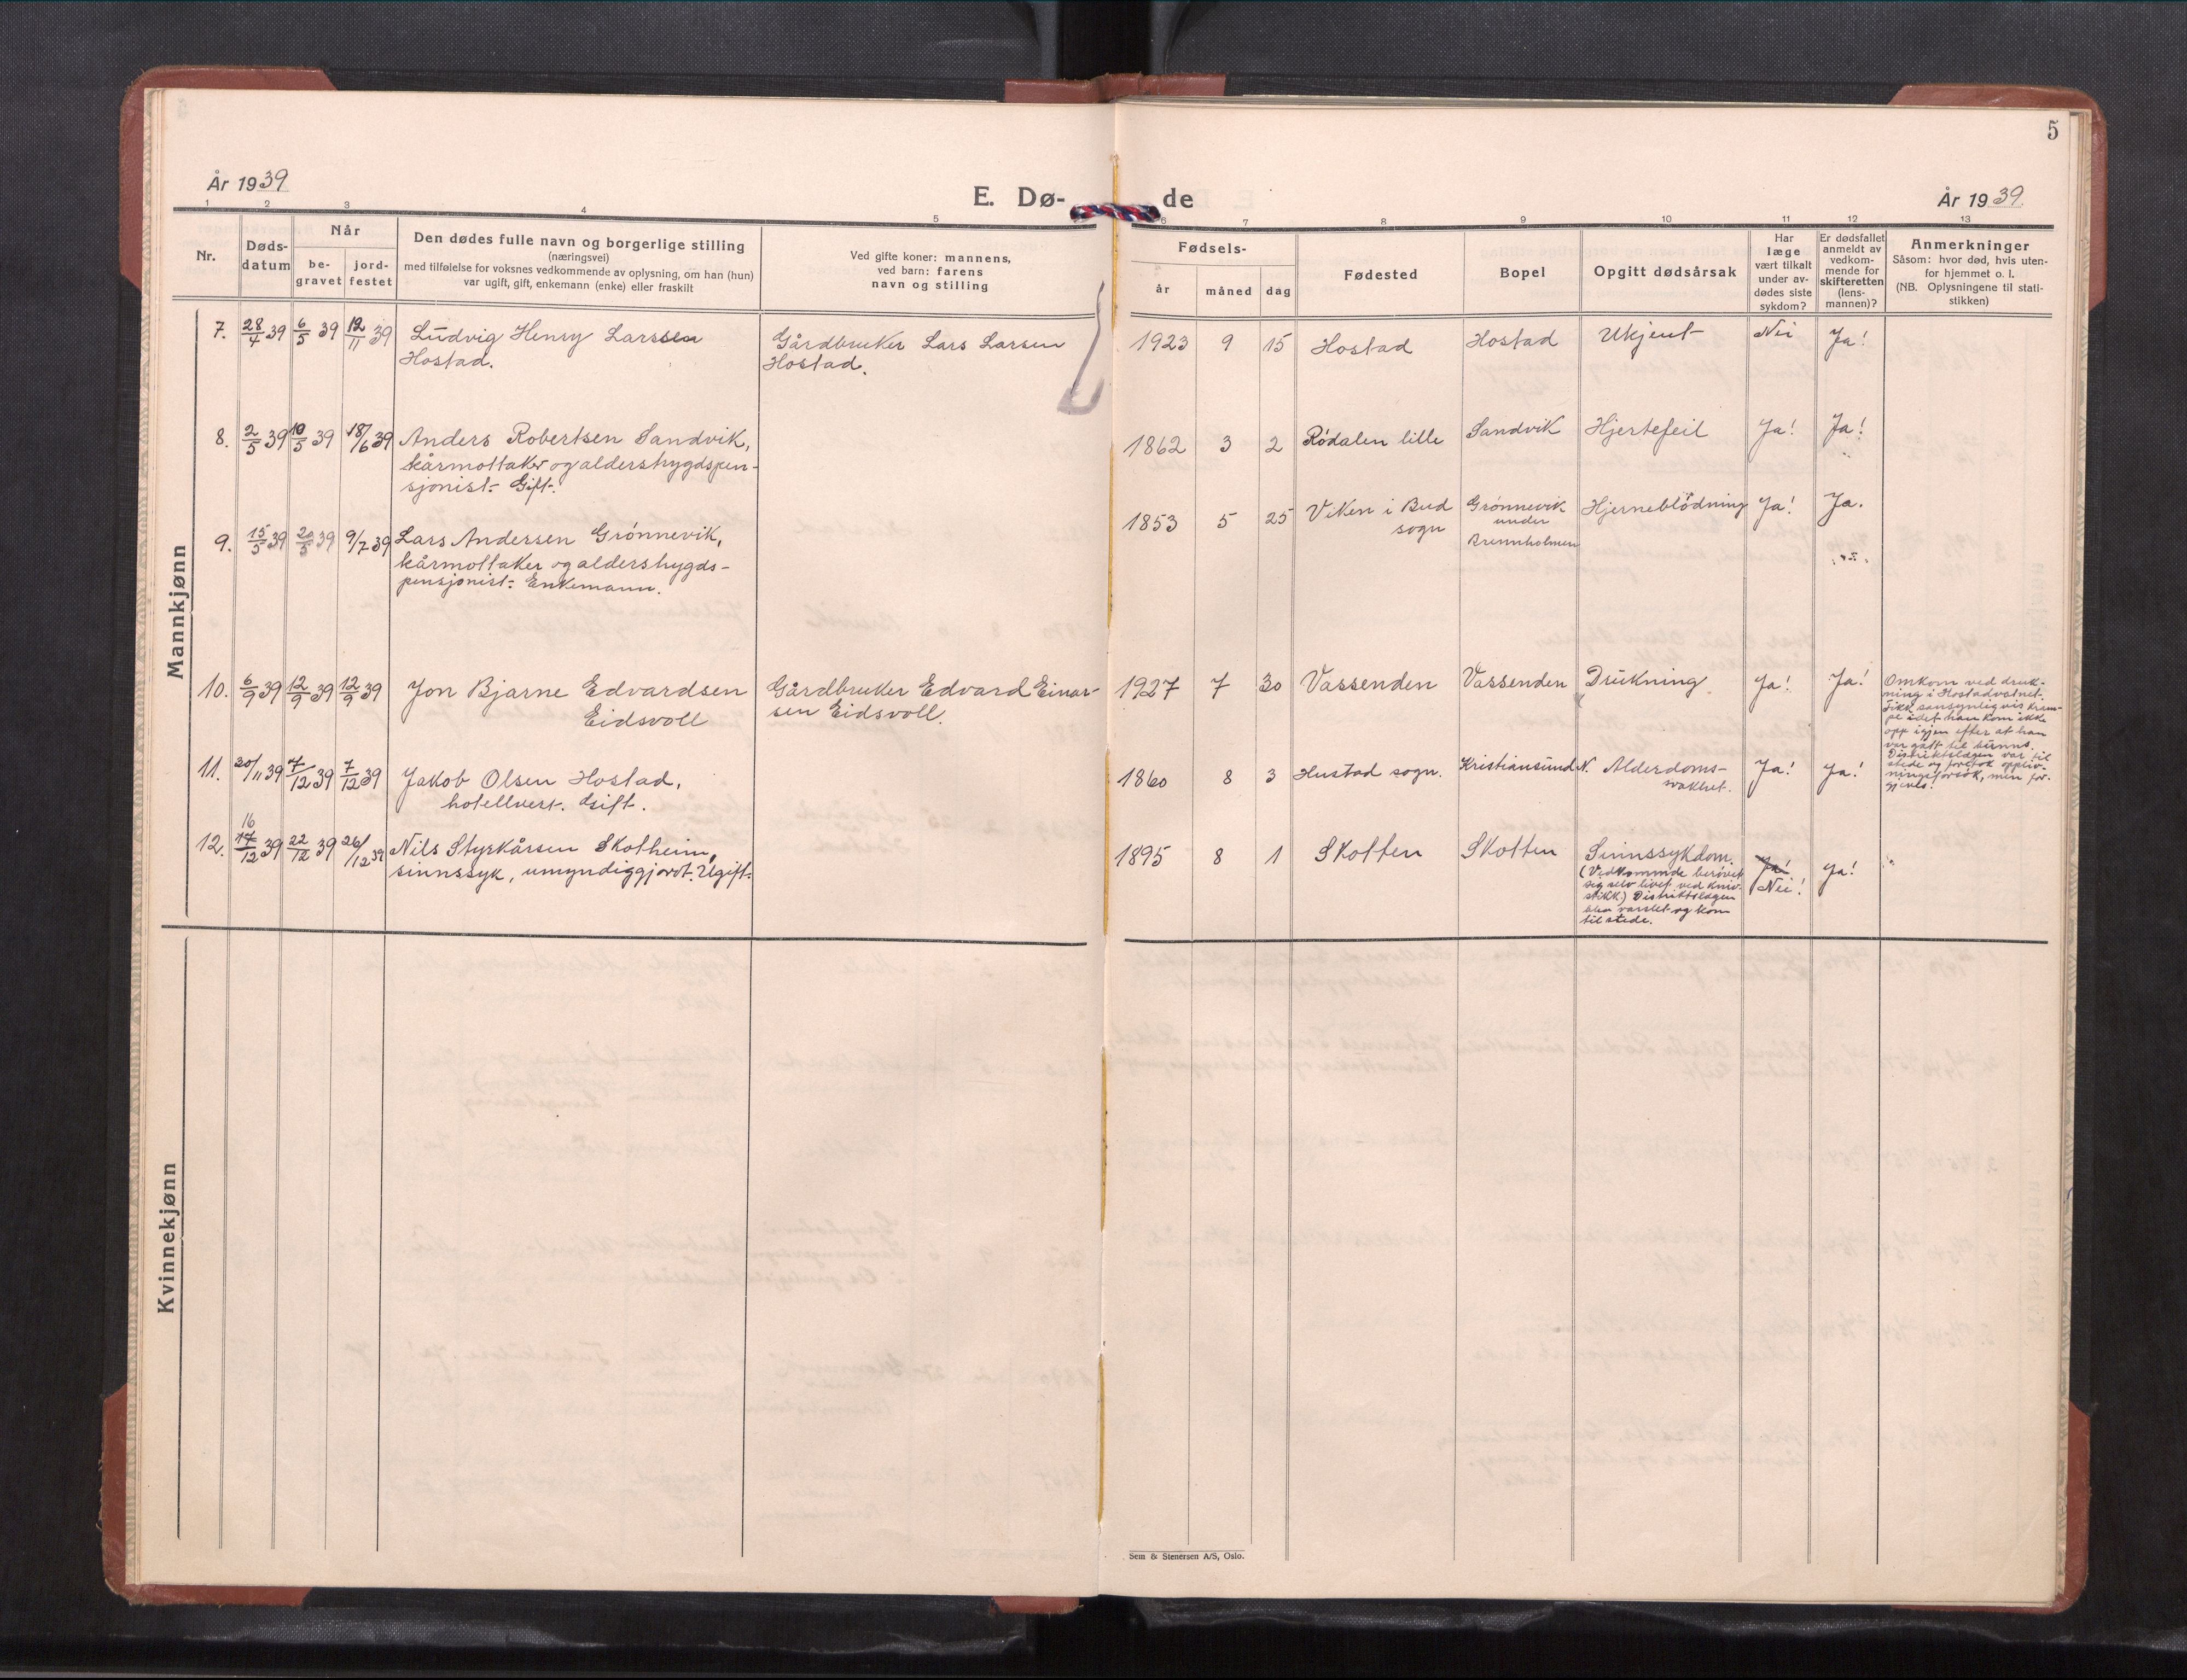 5
År 1939
E. Dø-
de
År 1939.
1 2 3 4 5 6 7 8 9 10 11 12 13
Nr.
Døds-
datum
Når
be-
gravet
jord-
festet
Den dødes fulle navn og borgerlige stilling
(næringsvei)
med tilføielse for voksnes vedkommende av oplysning, om han (hun)
var ugift, gift, enkemann (enke) eller fraskilt
Ved gifte koner: mannens,
ved barn: farens
navn og stilling
Fødsels-
år
måned
dag
Fødested
Bopel
Opgitt dødsårsak
Har
læge
vært tilkalt
under av-
dødes siste
sykdom?
Er dødsfallet
anmeldt av
vedkom-
mende for
skifteretten
(lens-
mannen)?
Anmerkninger
Såsom: hvor død, hvis uten-
for hjemmet o. l.
(NB. Oplysningene til stati-
stikken)
Mannkjønn
7. 28/4 39 6/5 39 12/11 39 Ludvig Henry Larssen
Hostad.
Gårdbruker Lars Larsen
Hostad.
1923 9 15 Hostad Hostad Ukjent Nei Ja!
8. 2/5 39 10/5 39 18/6 39 Anders Robertsen Sandvik,
kårmottaker og alderstrygdspen-
sjonist. Gift.
1862 3 2 Rødalen lille Sandvik Hjertefeil Ja! Ja!
9. 15/5 39 20/5 39 9/7 39 Lars Andersen Grønnevik,
kårmottaker og alderstrygds-
pensjonist. Enkemann.
1853 5 25 Viken i Bud
sogn
Grønnevik
under
Brennholmen
Hjerneblødning Ja! Ja.
10. 6/9 39 12/9 39 12/9 39 Jon Bjarne Edvardsen
Eidsvoll
Gårdbruker Edvard Einar-
sen Eidsvoll.
1927 7 30 Vassenden Vassenden Drukning Ja! Ja!
Omkom ved druk-
ning i Hostadvatnet.
Fikk sansynlegvis kram-
pe idet han kom ikke
opp igjen efter at han
var gått til bunns.
Distriktslægen var til
stede og foretok oppliv-
ningsforsøk, men for-
gjeves.
11. 30/11 39 7/12 39 7/12 39 Jakob Olsen Hostad,
hotellvert. Gift.
1860 8 3 Hustad sogn. Kristiansund N. Alderdoms-
svakhet.
Ja! Ja!
16
12. 17/12 39 22/12 39 26/12 39 Nils Styrkårsen Skotheim,
sinnssyk, umyndiggjort. Ugift.
1895 8 1 Skotten Skotten Sinnssykdom.
(Vedkommende berøvet
seg selv livet ved kniv-
stikk.) Distriktslægen
blev varslet og kom
til stede.
Ja!
Nei!
Ja!
Kvinnekjønn
Sem & Stenersen A/S, Oslo.